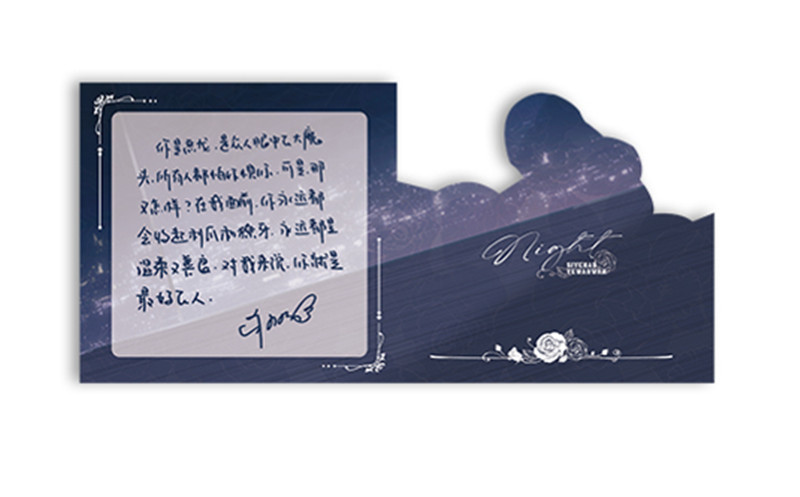 你是恶龙,是众人眼中的大魔
头,所有人都怕你恨你,可是,那
又怎样?在我面前,你永远都
会收起利爪和獠牙,永远都是
温柔又善良,对我来说,你就是
最好的人.
Night